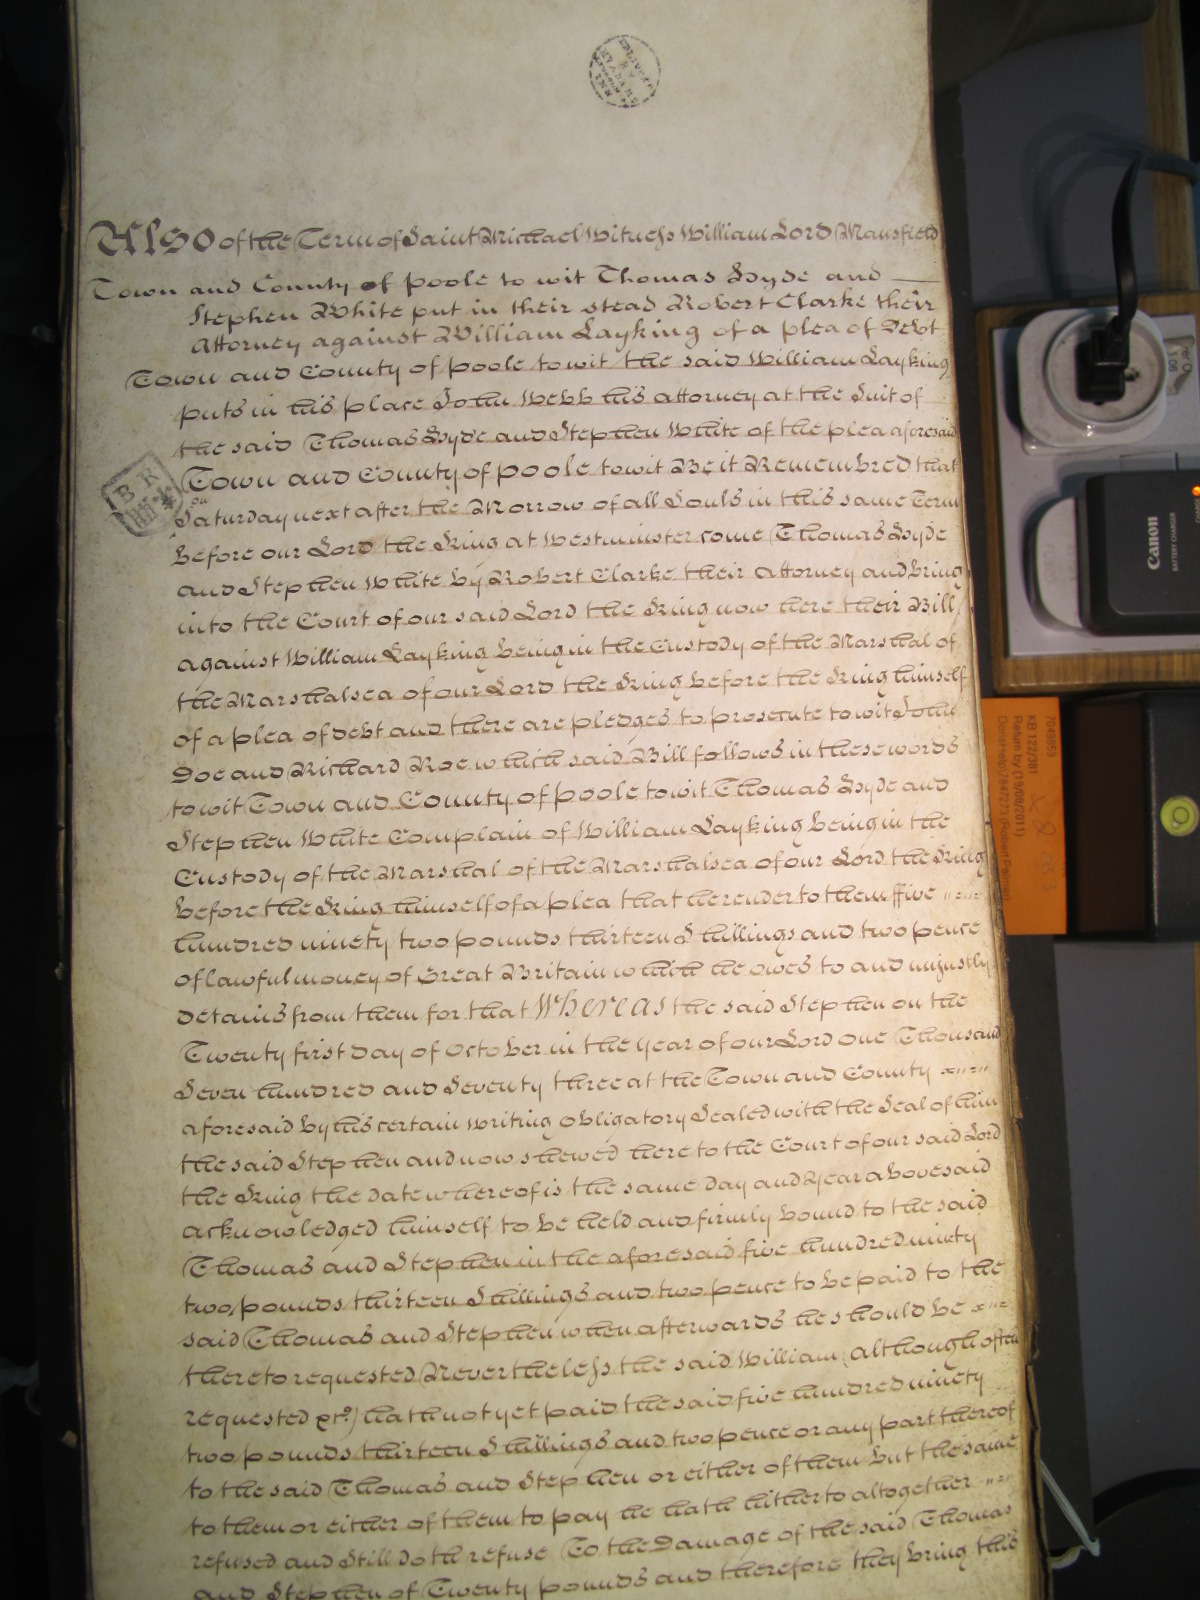 Also of the Term of Saint Michael Witness William Lord Mansfield
Town and County of Poole to wit Thomas Hyde and
Stephen White put in their stead Robert Clarke their
Attorney against William Layking of a plea of Debt
Town and County of Poole to wit the said William Layking
puts in his place John Webb his attorney at the Suit of
the said Thomas Hyde and Stephen White of the plea aforesaid
Town and County of Poole to wit Be it Remembred that
on
Saturday next after the Morrow of all Souls in this same Term
before our Lord the King at Westminster come Thomas Hyde
and Stephen White by Robert Clarke their attorney and bring
into the Court of our said Lord the King now here their Bill
against William Layking being in the Custody of the Marshal of
the Marshalsea of our Lord the King before the King himself
of a plea of debt and there are pledges to prosecute to wit John
Doe and Richard Roe which said Bill follows in these words
to wit Town and County of Poole to wit Thomas Hyde and
Stephen White Complain of William Layking being in the
Custody of the Marshal of the Marshalsea of our Lord the King
before the King himself of a plea that he render to them ffive
hundred ninety two pounds thirteen Shillings and two pence
of lawful money of Great Britain which he owes to and unjustly
detains from them for that Whereas the said Stephen on the
Twenty first day of October in the year of our Lord one Thousand
Seven hundred and Seventy three at the Town and County
aforesaid by his certain writing obligatory Sealed with the Seal of him
the said Stephen and now shewed here to the Court of our said Lord
the King the date whereof is the same day and Year abovesaid
acknowledged himself to be held and firmly bound to the said
Thomas and Stephen in the aforesaid five hundred ninety
two pounds thirteen Shillings and two pence to be paid to the
said Thomas and Stephen when afterwards he should be
thereto requested Nevertheless the said William (although often
requested &ct.) hath not yet paid the said five hundred ninety
two pounds thirteen Shillings and two pence or any part thereof
to the said Thomas and Stephen or either of them but the same
to them or either of them to pay he hath hitherto altogether
refused and Still doth refuse To the Damage of the said Thomas
and Stephen of Twenty pounds and therefore they bring this
Canon
BATTERY CHARGER
7049959
KB 122/381
Return by (19/08/2011)